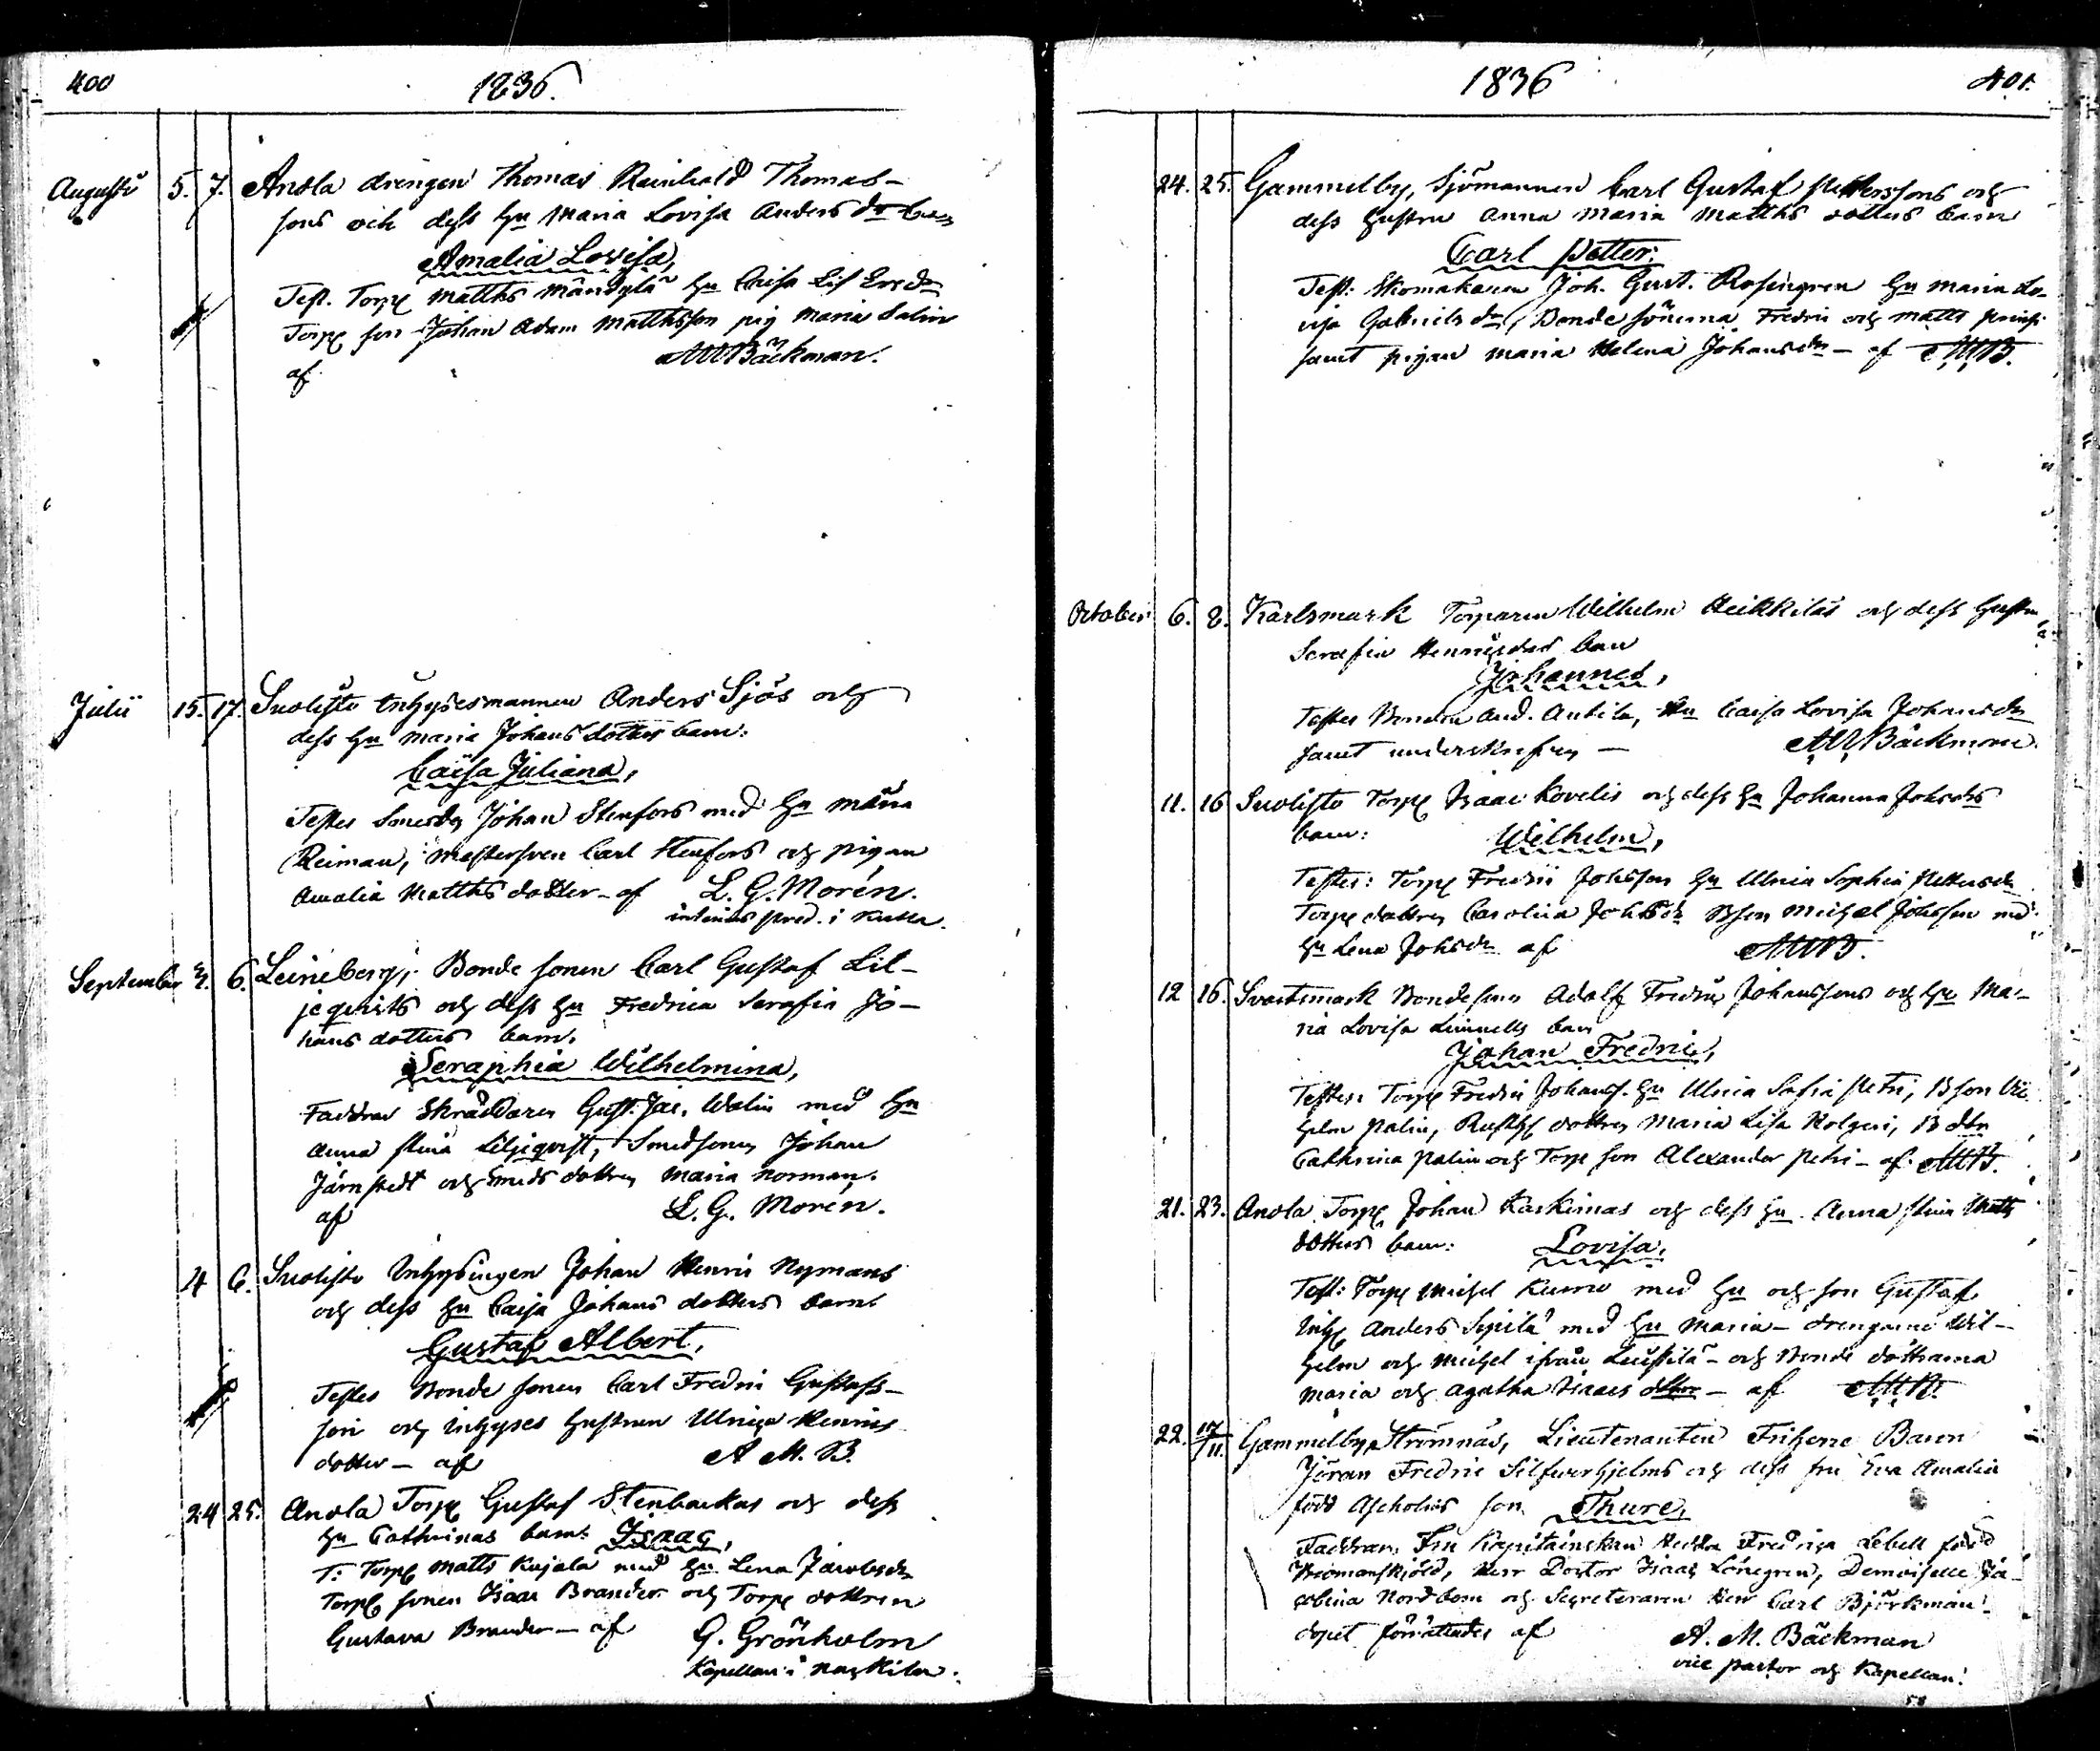 400
1836.
Augusti 5. 7. Anola drengen Thomas Reinhold Thomas-
sons och dess Hu Maria Lovisa Anders dr barn
Amalia Lovisa,
Test. Torp Matths Mändylä Hu Caisa Lis
Torp son Johan Adam Matthsson pig Maria Salin
af AMBäckman.
Julii 15. 17. Suolisto Inhysesmannen Anders Sjös och
dess Hu Maria Johans dotters barn:
Caisa Juliana,
Testes Johan Stenfors med Hu
Reiman, Carl Stenfors och pigan
Amalia Matths dotter - af L. G. Morén.
pred. i
September 3. 6. Leineberg, Bonde sonen Carl Gustaf Lil-
jeqvists och dess Hu Fredrica Serafia Jo-
hans dotters barn,
Seraphia Wilhelmina,
Faddrar Skräddaren Gust. Jac. Walin med Hu
Anna Stina Liljeqvist, Smedsonen Johan
Järnstedt och Smeds dottren Maria Norman.
af L. G. Morén.
4 6. Suolisto Inhysingen Johan Henric Nymans
och dess Hu Caisa Johans dotters barn:
Gustaf Albert,
Testes Bonde sonen Carl Fredric Gustafs-
son och Inhyses hustrun Ulrica Henrics
dotter - af A. M. B.
24 25. Anola Torp Gustaf Stenbackas och dess
Hu Cathrinas barn: Isaac,
T: Torp Matts Kujala med Hu Lena Jacobsdr
Torp sonen Isaac Brander och Torp dottren
Gustava Brander - af G. Grönholm
Kapellan i
1836
401.
24. 25. Gammelby, Sjömannen Carl Gustaf Petterssons och
dess hustru Anna Maria Matths dotters barn
Carl Petter.
Test: Skomakaren Joh. Gust. Rosengren Hu Maria Lo-
visa Gabriels dr, Bonde sönerna Fredric och Matts
samt pigan Maria Helena Johansdr - af AMB.
October 6. 8. Karlsmark Torparen Wilhelm Heikkiläs och dess hustru
Serafia Henricsdrs barn
Johannes,
Testes Bonden And. Antila, Hu Caisa Lovisa Johansdr
samt underskrefven - AMBäckman.
11. 16 Suolisto Torp Isaac Kovelis och dess Hu Johanna Johsdrs
barn: Wilhelm,
Testes: Torp Fredric Johsson Hu Ulrica Sophia Pettersdr
Torp dottren Carolina Johsdr Bson Michel Johsson med
Hu Lena Johsdr af AMB.
12 16. Svartsmark Bondeson Adolf Fredric Johanssons och Hu Ma-
ria Lovisa barn
Johan Fredric,
Testes: Torp Fredric Johanss. Hu Ulrica Sofia Petri, Bson Vil-
helm Palin, Rusth dottren Maria Lisa Holgeri, B dtr
Cathrina Palin och Torp son Alexander Petri - af AMB.
21. 23. Anola Torp Johan Kaskinas och dess Hu Anna Stina Matts
dotters barn: Lovisa,
Test: Torp Michel Kurru med Hu och son Gustaf
Inh Anders Sipilä med Hu Maria - drengarne Wil-
helm och Michel ifrån - och Bonde döttrarna
Maria och Agatha Isaacs dttrar - af AMB.
22. 17/11. Gammelby, Strömnäs, Lieutenanten Friherre Baron
Jöran Fredric Silfwerhjelms och dess fru Eva Amalia
född Ascholins son Thure,
Faddrar: Fru Kapitainskan Hedda Fredrica Lebell född
Herr Doctor Isaac Lönegren, Demoiselle Ja-
cobina Nordbom och Secreteraren Herr Carl Björkman.
dopet förrättades af A. M. Bäckman
vice pastor och Kapellan.